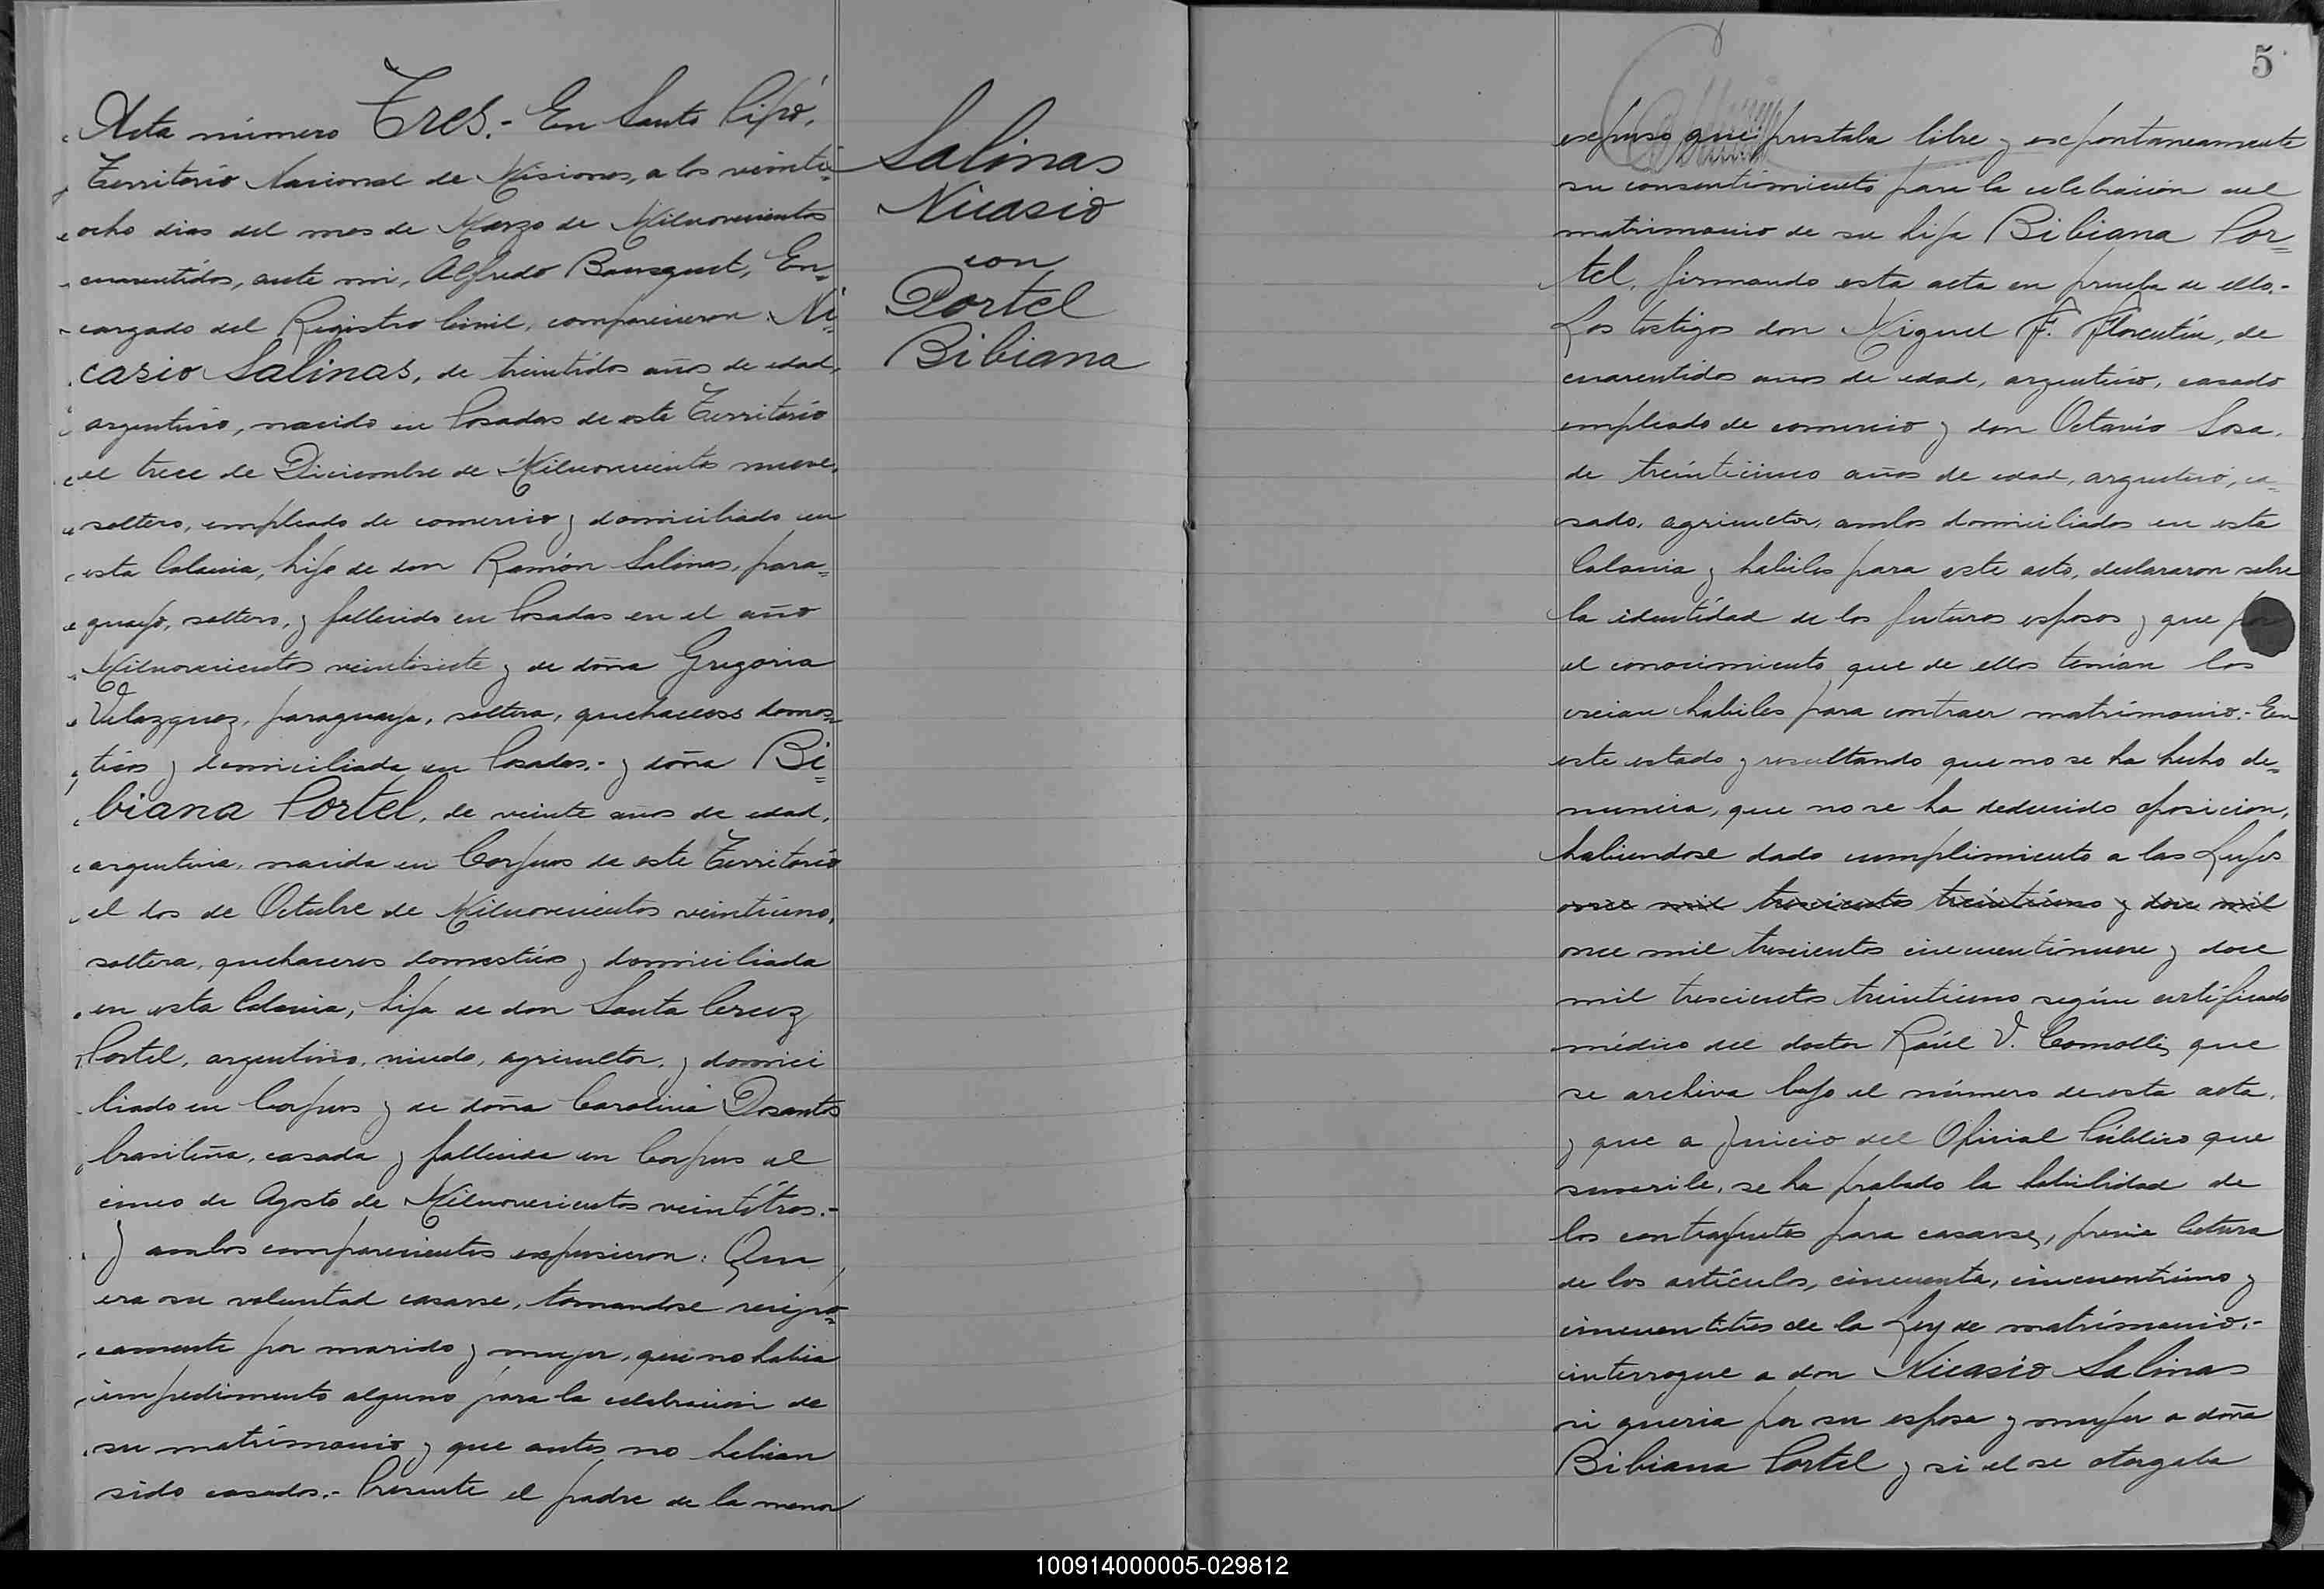 Acta número Tres.- En Santo Pipó,
Territorio Nacional de Misiones, a los veinti=
ocho dias del mes de Marzo de Milnovecientos
cuarentidós, ante mi, Alfredo Bousquet, En=
cargado del Registro Civil, comparecieron: Ni=
casio Salinas, de treintidós años de edad,
argentino, nacido en Posadas de este Territorio
el trece de Diciembre de Milnovecientos nueve,
soltero, empleado de comercio y domiciliado en
esta Colonia, hijo de don Ramón Salinas, para=
guayo, soltero, y fallecido en Posadas en el año
Milnovecientos veintisiete y de doña Gregoria
Velazquez, paraguaya, soltera, quehaceres domes=
ticos y domiciliada en Posadas.- y doña Bi=
biana Portel, de veinte años de edad,
argentina, nacida en Corpus de este Territorio
el dos de Octubre de Milnovecientos veintiuno,
soltera, quehaceres domesticos y domiciliada
en esta Colonia, hija de don Santa Cruz
Portel, argentino, viudo, agricultor, y domici
liado en Corpus y de doña Carolina Dosantos
brasileña, casada y fallecida en Corpus el
cinco de Agosto de Milnovecientos veintitres.-
Y ambos comparecientes expusieron: Que
era su voluntad casarse, tomandose recipro=
camente por marido y mujer, que no habia
impedimento alguno para la celebracion de
su matrimonio y que antes no habian
sido casados.- Presente el padre de la menor
Salinas
Nicasio
con
Portel
Bibiana
5
expuso que prestaba libre y expontaneamente
su consentimiento para la celebracion del
matrimonio de su hija Bibiana Por=
tel, firmando esta acta en prueba de ello.-
Los testigos don Miguel F. Florentín, de
cuarentidos años de edad, argentino, casado
empleado de comercio y don Octavio Sosa,
de treinticinco años de edad, argentino, ca=
sado, agricultor, ambos domiciliados en esta
Colonia y habiles para este acto, declararon sobre
la identidad de los futuros esposos y que por
el conocimiento que de ellos tenían los
creian habiles para contraer matrimonio.- En
este estado y resultando que no se ha hecho de=
nuncia, que no se ha deducido oposicion,
habiendose dado cumplimiento a las Leyes
once mil trescientos treintiuno y doce mil
once mil trescientos cincuentinueve y doce
mil trescientos treintiuno según certificado
médico del doctor Raúl V. Comolli, que
se archiva bajo el número de esta acta,
y que a juicio del Oficial Público que
suscribe, se ha probado la habilidad de
los contrayentes para casarse, previa lectura
de los artículos, cincuenta, cincuentiuno y
cincuentitres de la Ley de matrimonio.-
interrogue a don Nicasio Salinas
si queria por su esposa y mujer a doña
Bibiana Portel y si el se otorgaba
100914000005-029812